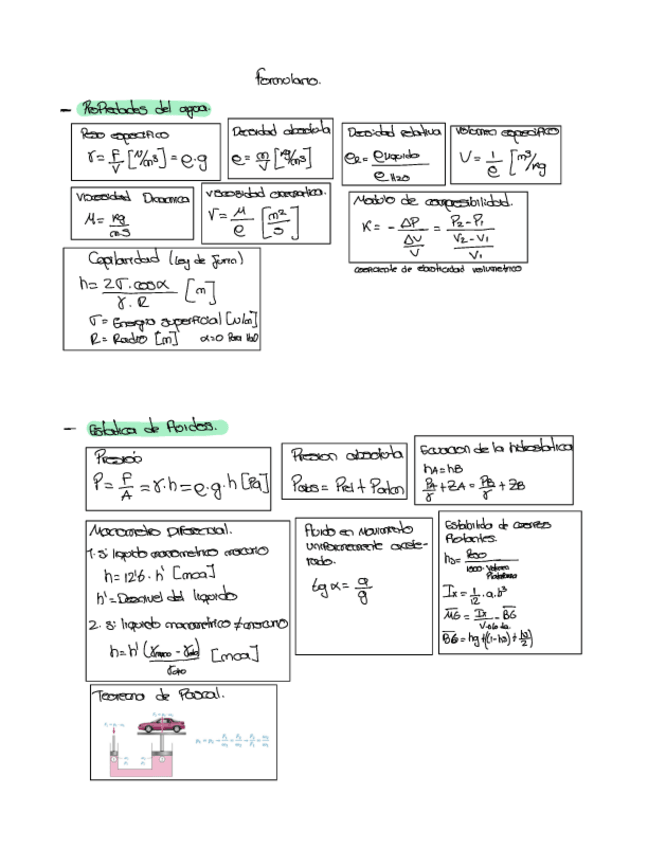 Formulario.
- Propiedades del agua.
Peso específico
γ = F/V [N/m³] = ρ·g
Densidad absoluta
ρ = m/V [kg/m³]
Densidad relativa
ρR = ρ líquido / ρ H2O
Volumen específico
V = 1/ρ [m³/kg]
Viscosidad Dinámica
μ = kg/m·s
Viscosidad cinemática.
V = μ/ρ [m²/s]
Módulo de compresibilidad.
K = - ΔP/(ΔV/V) = (P2 - P1)/((V2 - V1)/V1)
coeficiente de elasticidad volumétrico
Capilaridad (Ley de Jurin)
h = 2σ·cosα / γ·R [m]
σ = Energía superficial [N/m]
R = Radio [m] α=0 para H2O
- Estática de fluidos.
Presión
P = F/A = γ·h = ρ·g·h [Pa]
Presión absoluta
Pabs = Prel + Patm
Ecuación de la hidrostática
hA = hB
PA/γ + ZA = PB/γ + ZB
Manómetro Diferencial.
1. Si líquido manométrico mercurio
h = 12'6 · h' [mca]
h' = Desnivel del líquido
2. Si líquido manométrico ≠ mercurio
h = h' (γmano - γagua / γagua) [mca]
Fluido en movimiento
uniformemente acele-
rado.
tg α = a/g
Estabilidad de cuerpos
flotantes.
Peso
1000 · Volumen
Ix = 1/12 · a·b³
MG = Ix / - BG
Teorema de Pascal.